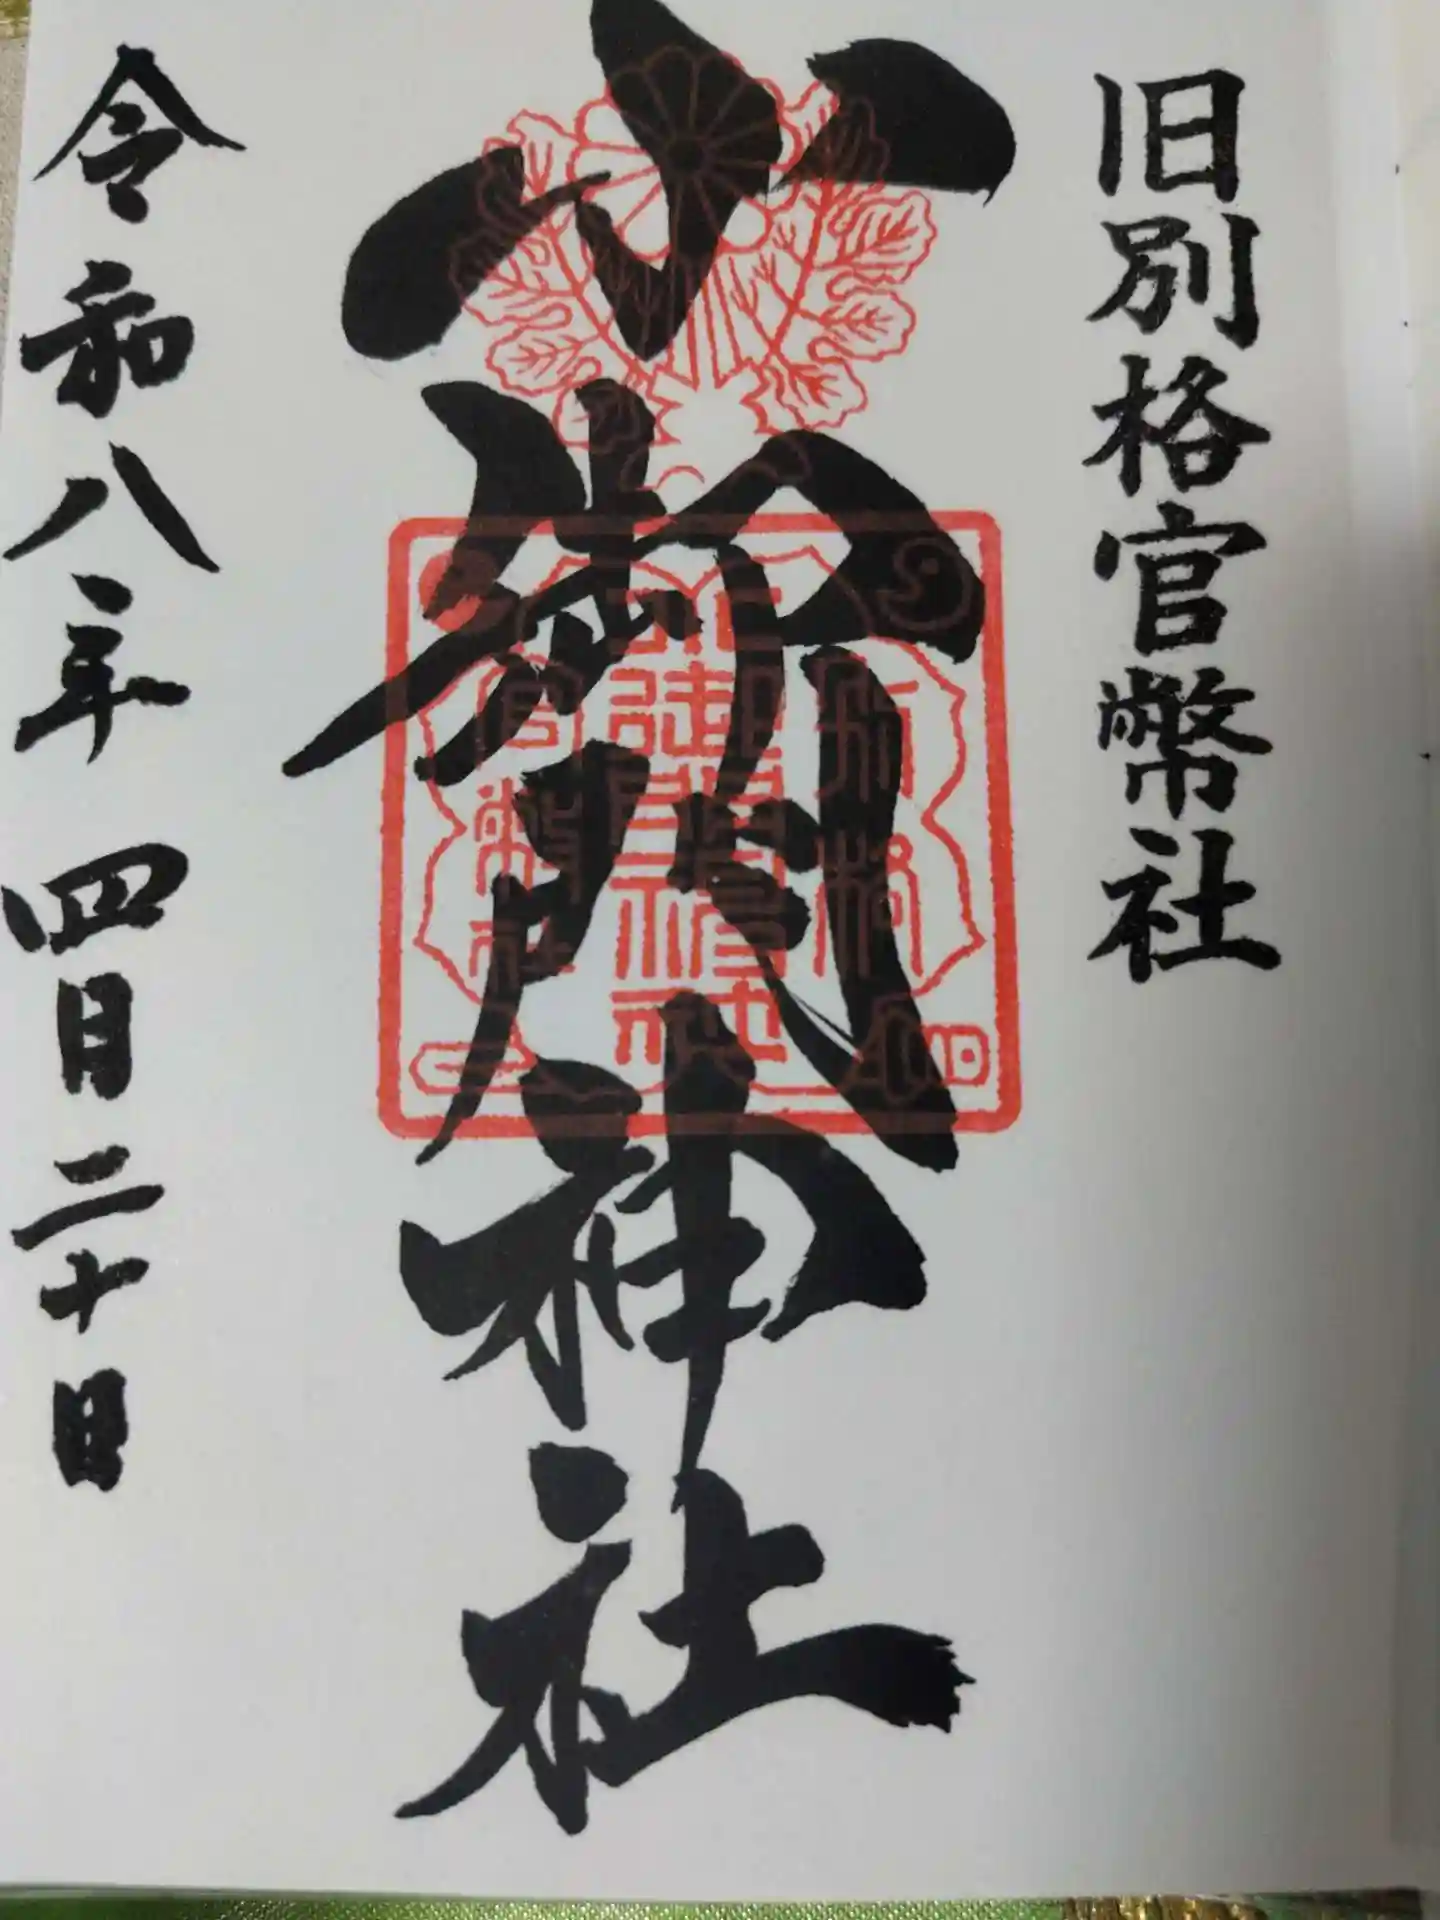 旧別格官幣社
小御門神社
別格
小御門神社
官幣社
令和八年四月二十日